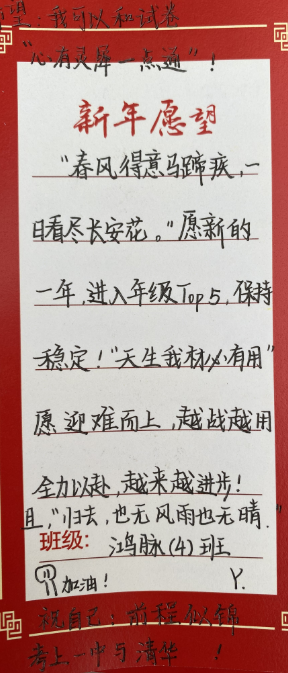 望：我可以和试卷
“心有灵犀一点通”！
新年愿望
“春风得意马蹄疾，一
日看尽长安花。”愿新的
一年，进入年级Top5，保持
稳定！“天生我材必有用”
愿迎难而上，越战越用
全力以赴，越来越进步！
且，“归去，也无风雨也无晴．”
班级：鸿脉（4）班
加油！ Y.
祝自己：前程似锦
考上一中与清华！